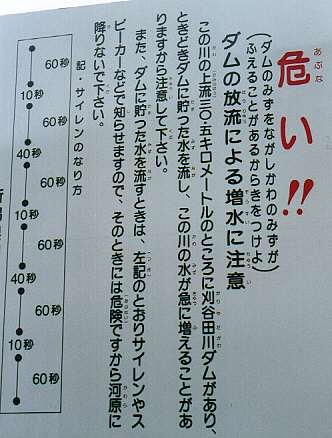 危い!!
あぶな
(ダムのみずをながしかわのみずが
ふえることがあるからきをつけよ)
ダムの放流による増水に注意
この川の上流三〇・五キロメートルのところに刈谷田川ダムがあり、
ときどきダムに貯った水を流し、この川の水が急に増えることがあ
りますから注意して下さい。
また、ダムに貯った水を流すときは、左記のとおりサイレンやス
ピーカーなどで知らせますので、そのときには危険ですから河原に
降りないで下さい。
記・サイレンのなり方
60秒
10秒
60秒
40秒
60秒
10秒
60秒
40秒
60秒
10秒
60秒